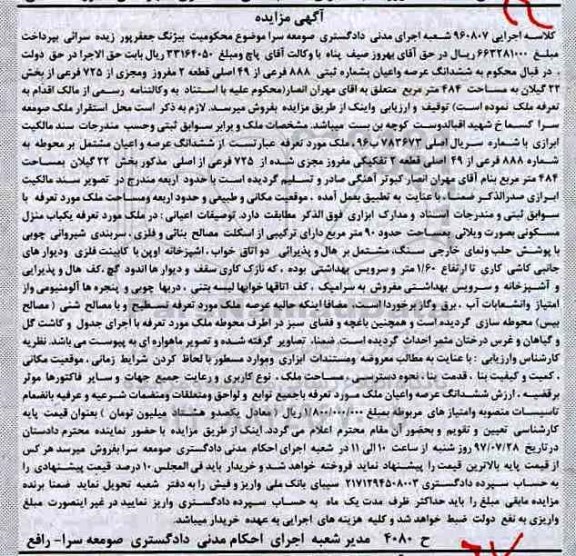 آگهی مزایده
کلاسه اجرایی ۹۶۰۸۰۷ شعبه اجرای مدنی دادگستری صومعه سرا موضوع محکومیت بیژنگ جعفرپور زیده سرائی بپرداخت
مبلغ ۶۶۳۲۸۱۰۰۰ ریال در حق آقای بهروز صیف پناه با وکالت آقای پاچ ومبلغ ۳۳۱۶۴۰۵۰ ریال بابت حق الاجرا در حق دولت
. در قبال محکوم به ششدانگ عرصه واعیان بشماره ثبتی ۸۸۸ فرعی از ۴۹ اصلی قطعه ۲ مفروز ومجزی از ۷۲۵ فرعی از بخش
۲۲ گیلان به مساحت ۴۸۴ متر مربع متعلق به اقای مهران انصار(محکوم علیه با استناد به وکالتنامه رسمی از مالک اقدام به
تعرفه ملک نموده است) توقیف و ارزیابی واینک از طریق مزایده بفروش میرسد. لازم به ذکر است محل استقرار ملک صومعه
سرا کسما خ شهید اقبالدوست کوچه بن بست میباشد. مشخصات ملک و برابر سوابق ثبتی وحسب مندرجات سند مالکیت
ابرازی با شماره سریال اصلی ۷۸۳۶۷۳ ب۹۶، ملک مورد تعرفه عبارتست از ششدانگ عرصه و اعیان مشتمل بر محوطه به
شماره ۸۸۸ فرعی از ۴۹ اصلی قطعه ۲ تفکیکی مفروز مجزی شده از ۷۲۵ فرعی از اصلی مذکور بخش ۲۲ گیلان بمساحت
۴۸۴ متر مربع بنام آقای مهران انصار کبوتر آهنگی صادر و تسلیم گردیده است با حدود اربعه مندرج در تصویر سند مالکیت
ابرازی صدرالذکر ضمنا، با عنایت به تطبیق بعمل آمده ، موقعیت مکانی و طبیعی و حدود اربعه ومساحت ملک مورد تعرفه با
سوابق ثبتی و مندرجات اسناد و مدارک ابرازی فوق الذکر مطابقت دارد. توصیفات اعیانی : در ملک مورد تعرفه یکباب منزل
مسکونی بصورت ویلائی بمساحت حدود ۹۰ متر مربع دارای ترکیبی از اسکلت مصالح بنائی و فلزی ، سربندی شیروانی چوبی
با پوشش حلب ونمای خارجی سنگ، مشتمل بر هال و پذیرائی دو اتاق خواب ، اشپزخانه اوپن با کابینت فلزی ودیوار های
جانبی کاشی کاری تا ارتفاع ۱/۶۰ متر و سرویس بهداشتی بوده ، که نازک کاری سقف و دیوار ها اندود گچ ،کف هال و پذیرایی
و آشپزخانه و سرویس بهداشتی مفروش به سرامیک ، کف اتاقها خوابها لیسه بتنی ، دربها چوبی و پنجره ها آلومینیومی واز
امتیاز وانشعابات آب ، برق وگاز برخوردا است، مضافا اینکه حالیه عرصه ملک مورد تعرفه تسطیح و با مصالح شنی ( مصالح
بیس) محوطه سازی گردیده است و همچنین باغچه و فضای سبز در اطرف محوطه ملک مورد تعرفه با اجرای جدول و کاشت گل
و گیاهان و غرس درختان مثمر احداث گردیده است، ضمنا، تصاویر گرفته شده و تصویر ماهواره ای به پیوست می باشد. نظریه
کارشناس وارزیابی : با عنایت به مطالب معروضه ومستندات ابرازی وموارد مسطور با لحاظ کردن شرایط زمانی ، موقعیت مکانی
، کمیت و کیفیت بنا ، قدمت بنا ، نحوه دسترسی ، مساحت ملک ، نوع کاربری و رعایت جمیع جهات و سایر فاکتورها موثر
برقضیه ، ارزش ششدانگ عرصه واعیان ملک مورد تعرفه با جمیع توابع و لواحق ومتعلقات ومنضمات شرعیه و عرفیه بانضمام
تاسیسات منصوبه وامتیاز های مربوطه بمبلغ ۱/۸۰۰/۰۰۰/۰۰۰ ریال ( معادل یکصدو هشتاد میلیون تومان ) بعنوان قیمت پایه
کارشناسی تعیین و تقویم و بحضور آن مقام محترم اعلام می گردد. اینک از طریق مزایده با حضور نماینده محترم دادستان
در تاریخ ۹۷/۰۷/۲۸ روز شنبه از ساعت ۱۰ الی ۱۱ در شعبه اجرای احکام مدنی دادگستری صومعه سرا بفروش میرسد هر کس
از قیمت پایه بالاترین قیمت را پیشنهاد نماید فروخته خواهد شد و خریدار باید فی المجلس ۱۰ درصد قیمت پیشنهادی را
به حساب سپرده دادگستری ۲۱۷۱۲۹۴۵۰۸۰۰۳ سیبای بانک ملی واریز و فیش را به دفتر شعبه تحویل نماید ضمنا برنده
مزایده مابقی مبلغ را باید حداکثر ظرف مدت یک ماه به حساب سپرده دادگستری واریز نمایید در غیر اینصورت مبلغ
واریزی به نفع دولت ضبط خواهد شد و کلیه هزینه های اجرایی به عهده خریدار میباشد.
ح ۴۰۸۰ مدیر شعبه اجرای احکام مدنی دادگستری صومعه سرا- رافع